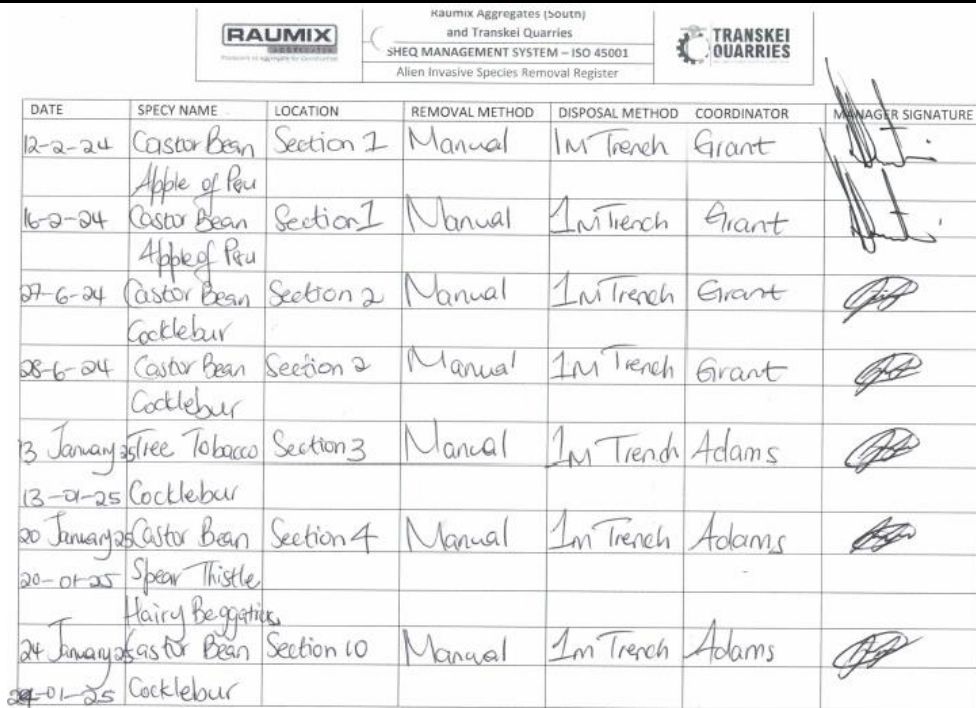 RAUMIX
AGGREGATES
Raumix Aggregates (South)
and Transkei Quarries
SHEQ MANAGEMENT SYSTEM – ISO 45001
Alien Invasive Species Removal Register
TRANSKEI
QUARRIES
DATE SPECY NAME LOCATION REMOVAL METHOD DISPOSAL METHOD COORDINATOR MANAGER SIGNATURE
12-2-24 Castor Bean Section 1 Manual 1M Trench Grant
Apple of Peru
16-2-24 Castor Bean Section 1 Manual 1M Trench Grant
Apple of Peru
27-6-24 Castor Bean Section 2 Manual 1M Trench Grant
Cocklebur
28-6-24 Castor Bean Section 2 Manual 1M Trench Grant
Cocklebur
13 January 25 Tree Tobacco Section 3 Manual 1M Trench Adams
13-01-25 Cocklebur
20 January 25 Castor Bean Section 4 Manual 1m Trench Adams
20-01-25 Spear Thistle
Hairy Beggarticks
24 January 25 Castor Bean Section 10 Manual 1m Trench Adams
24-01-25 Cocklebur